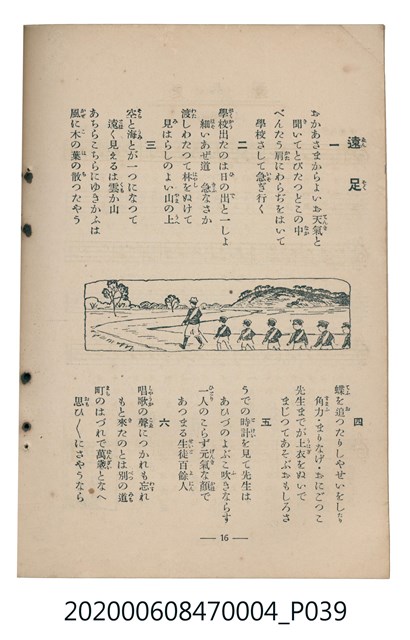 遠足
一
おかあさまからよいお天氣と
聞いてとびたつとこの中
べんたう肩にわらぢをはいて
學校さして急ぎ行く
二
學校出たのは日の出と一しよ
細いあぜ道 急なさか
渡しわたつて林をぬけて
見はらしのよい山の上
三
空と海とが一つになつて
遠く見えるは雲か山
あちらこちらにゆきかふは
風に木の葉の散つたやう
四
蝶を追つたりしやせいをしたり
角力・まりなげ・おにごつこ
先生までが上衣をぬいで
まじつてあそぶおもしろさ
五
うでの時計を見て先生は
あひづのよぶこ吹きならす
一人のこらず元氣な顔で
あつまる生徒百餘人
六
唱歌の聲につかれも忘れ
もと來たのとは別の道
町のはづれで萬歳となへ
思ひ〱にさやうなら
— 16 —
202000608470004_P039